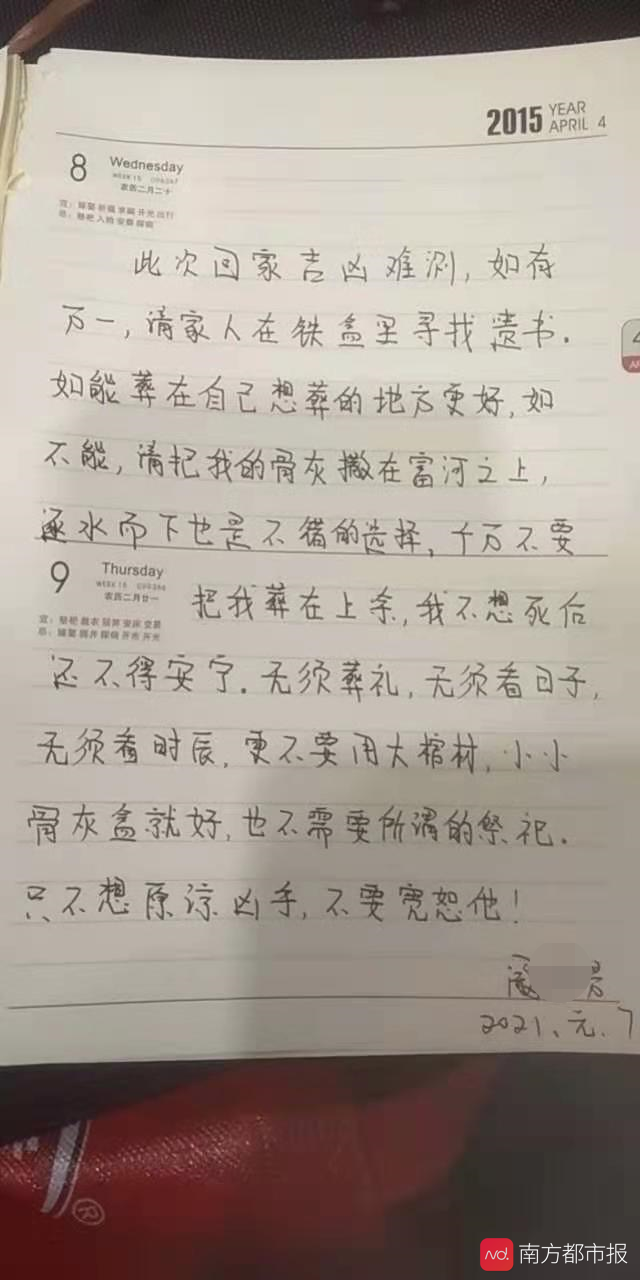 2015 YEAR
APRIL 4
8 Wednesday
WEEK 15
农历二月二十
此次回家吉凶难测,如有
万一,请家人在铁盒里寻找遗书.
如能葬在自己想葬的地方更好,如
不能,请把我的骨灰撒在富河之上,
逐水而下也是不错的选择,千万不要
9 Thursday
WEEK 15
农历二月廿一
把我葬在上余,我不想死后
还不得安宁.无须葬礼,无须看日子,
无须看时辰,更不要用大棺材,小小
骨灰盒就好,也不需要所谓的祭祀.
只不想原谅凶手,不要宽恕他!
2021、元.7
南方都市报